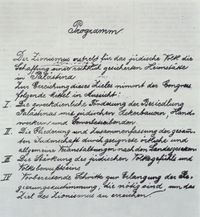 Programm
Der Zionismus erstrebt für das jüdische Volk die
Schaffung einer rechtlich gesicherten Heimstätte
in Palästina
Zur Erreichung dieses Zieles nimmt der Congress
folgende Mittel in Aussicht:
I. Die zweckdienliche Förderung der Besiedlung
Palästinas mit jüdischen Ackerbauern, Hand-
werkern und
II. Die Gliederung und Zusammenfassung der gesam-
ten Judenschaft durch geeignete örtliche und
allgemeine Veranstaltungen nach den Landesgesetzen.
III. Die Stärkung des jüdischen Volksgefühls und
Volksbewusstseins
IV. Vorbereitende Schritte zur Erlangung der Re-
gierungszustimmung, die nötig sind, um das
Ziel des Zionismus zu erreichen